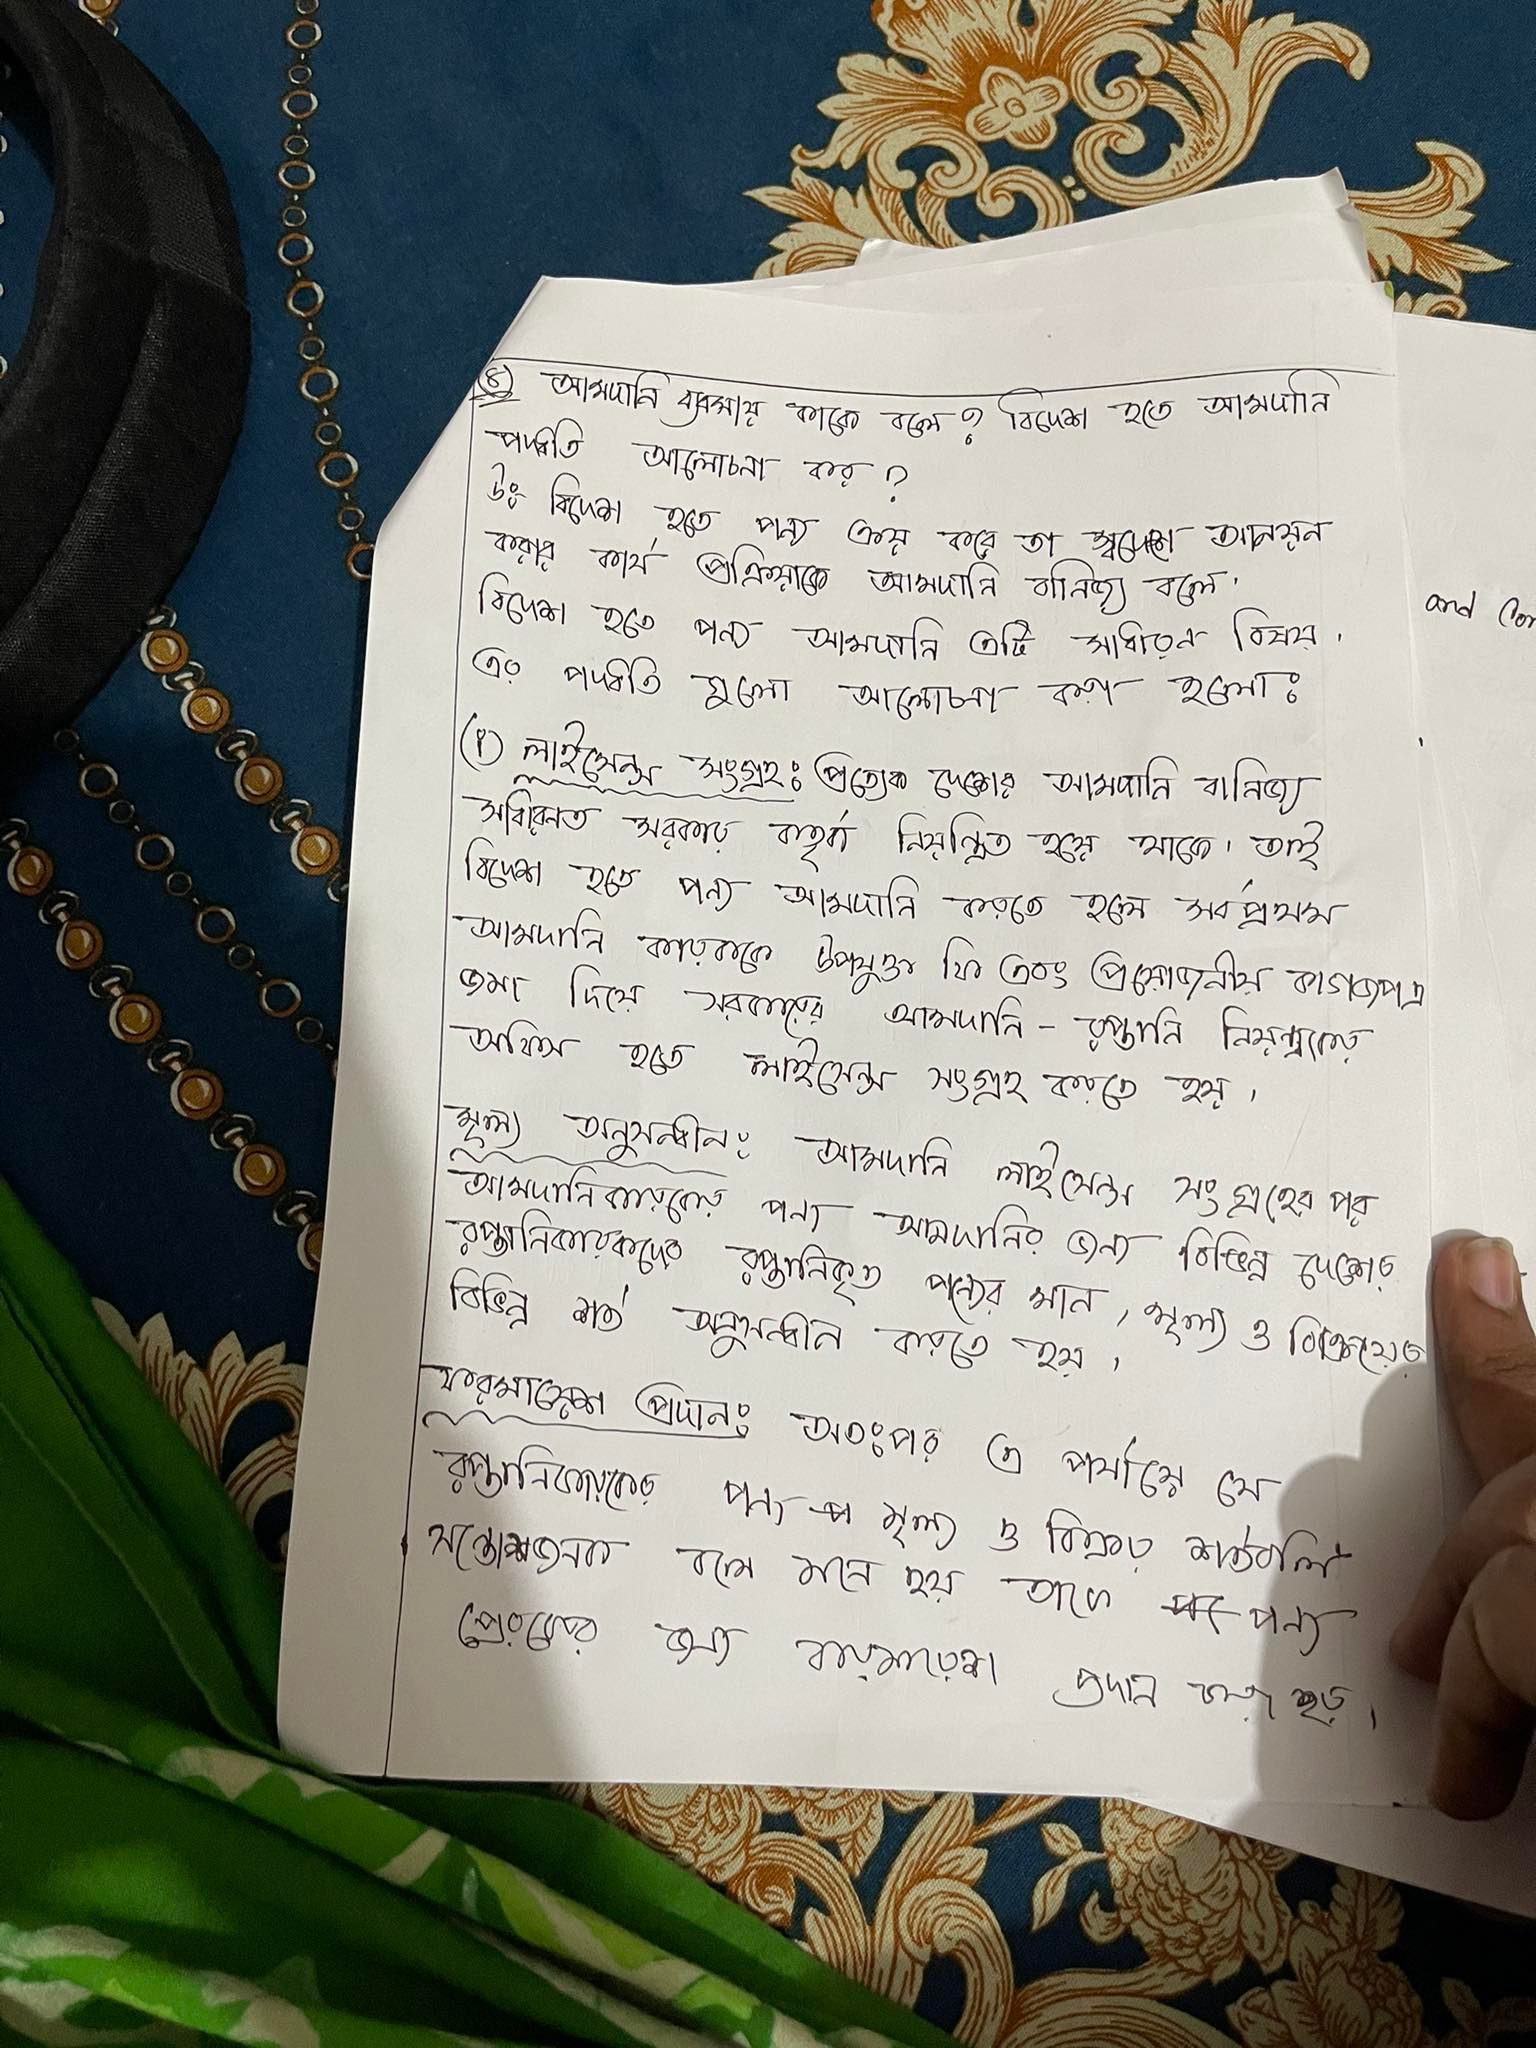 (৪) আমদানি ব্যবসায় কাকে বলে? বিদেশ হতে আমদানি
পদ্ধতি আলোচনা কর?
উঃ বিদেশ হতে পন্য ক্রয় করে তা স্বদেশে আনয়ন
করার কার্য প্রক্রিয়াকে আমদানি বানিজ্য বলে।
বিদেশ হতে পন্য আমদানি এটি সাধারন বিষয়।
এর পদ্ধতি গুলো আলোচনা করা হলো:
(১) লাইসেন্স সংগ্রহ: প্রত্যেক দেশের আমদানি বানিজ্য
সাধারনত সরকার কতৃর্ক নিয়ন্ত্রিত হয়ে থাকে। তাই
বিদেশ হতে পন্য আমদানি করতে হলে সর্বপ্রথম
আমদানি কারককে উপযুক্ত ফি এবং প্রয়োজনীয় কাগজপত্র
জমা দিয়ে সরকারের আমদানি - রপ্তানি নিয়ন্ত্রকের
অফিস হতে লাইসেন্স সংগ্রহ করতে হয়।
মূল্য অনুসন্ধান: আমদানি লাইসেন্স সংগ্রহের পর
আমদানিকারকের পন্য আমদানির জন্য বিভিন্ন দেশের
রপ্তানিকারকদের রপ্তানিকৃত পন্যের মান, মূল্য ও বিক্রয়ের
বিভিন্ন শর্ত অনুসন্ধান করতে হয়।
ফরমায়েশ প্রদান: অতঃপর এ পর্যায়ে যে
রপ্তানিকারকের পন্য মূল্য ও বিক্রয় শর্তাবলি
সন্তোষজনক বলে মনে হয় তাকে পন্য
প্রেরণের জন্য ফরমায়েশ প্রদান করা হয়।
and Con